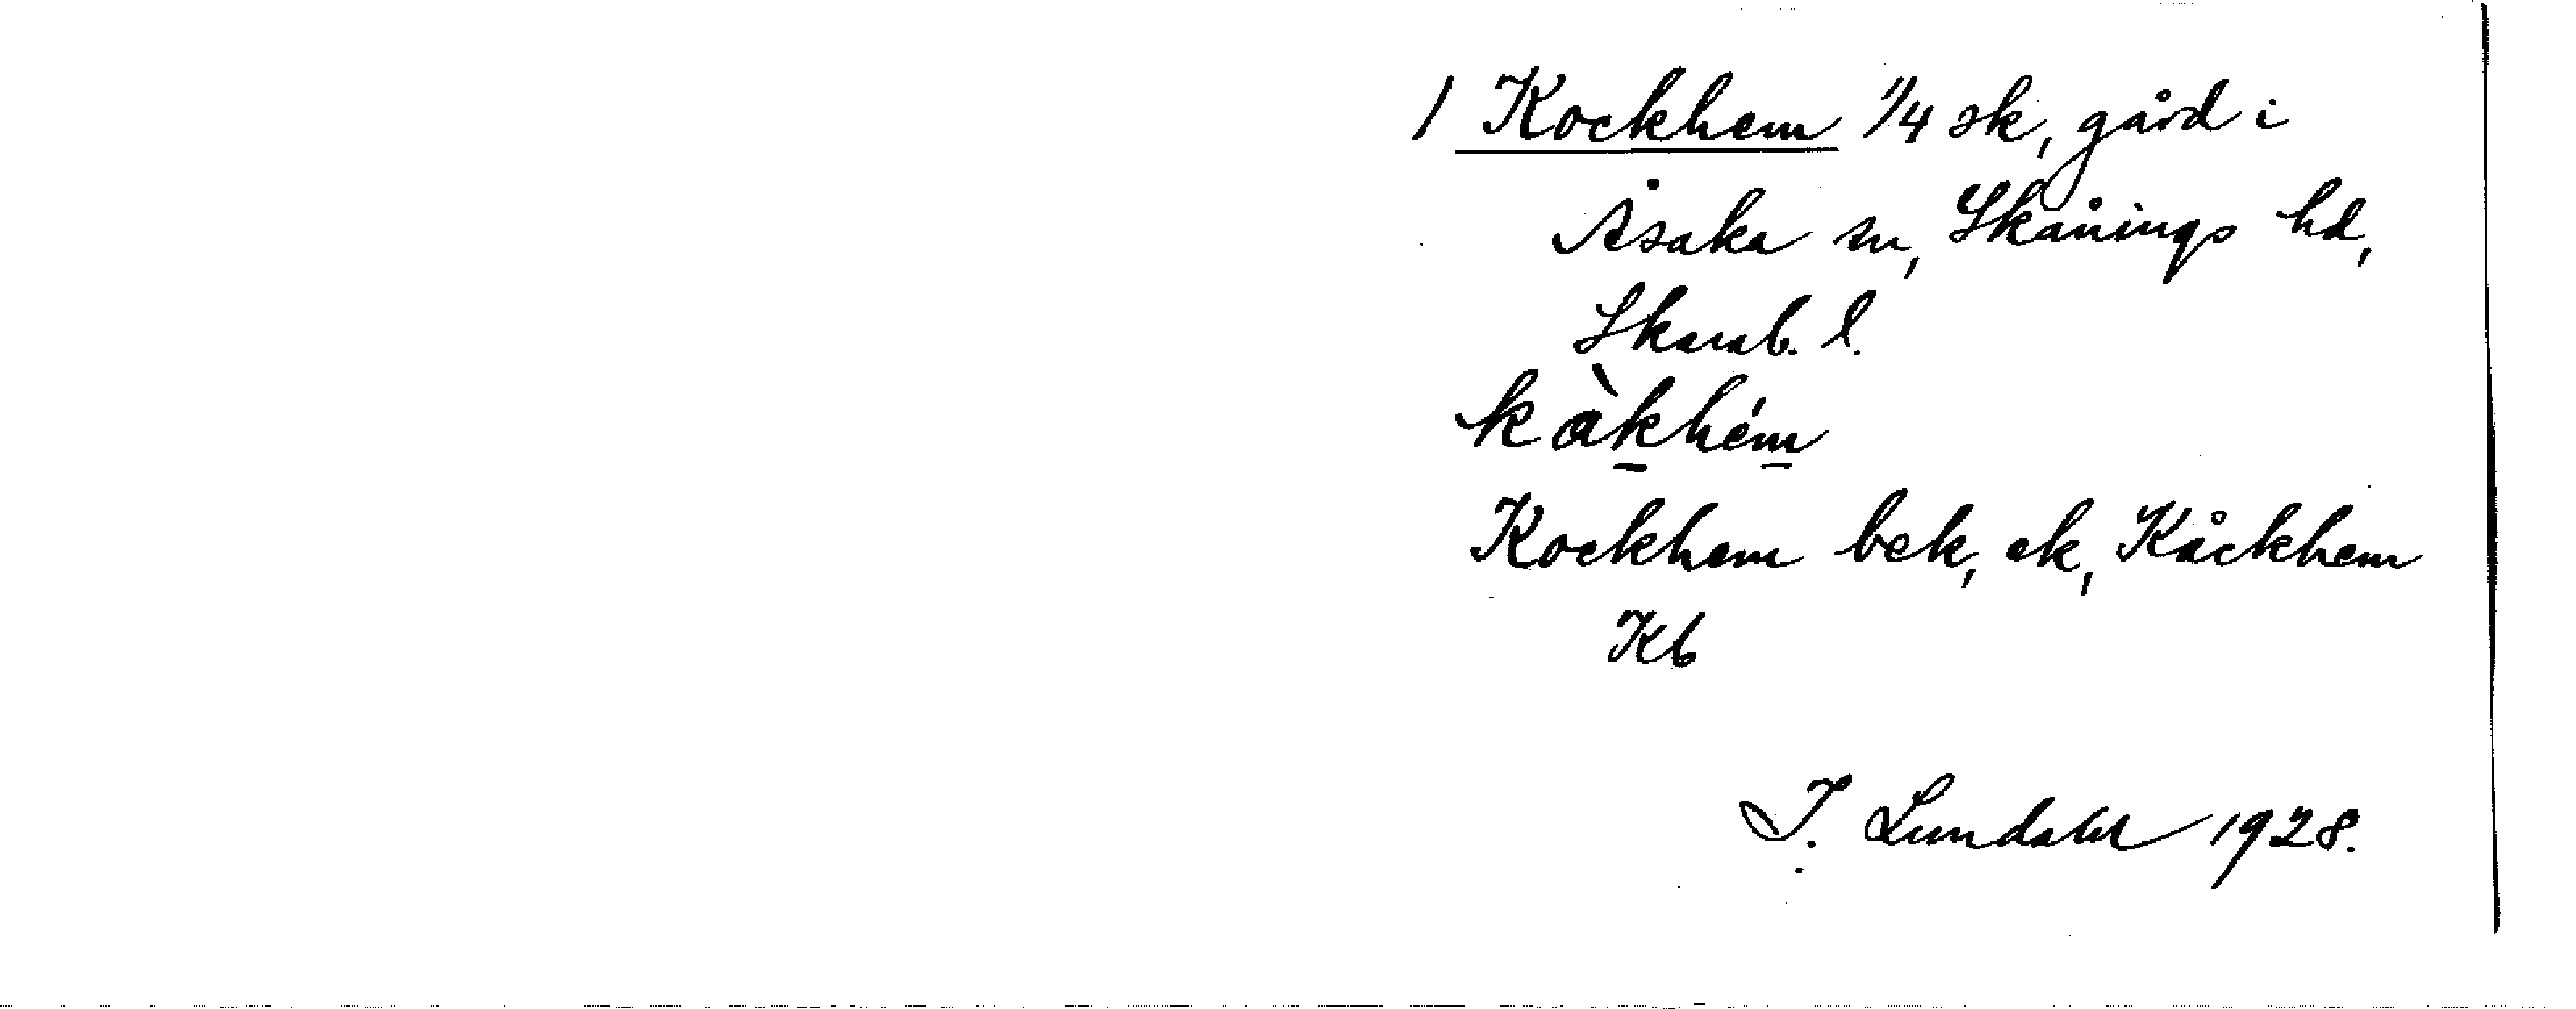 1 Kockhem 1/4 sk, gård i
Åsaka sn, Skånings hd,
Skarab. l.
kàkhém
Kockhem bek, ek, Kåckhem
Kb
I. Lundahl 1928.